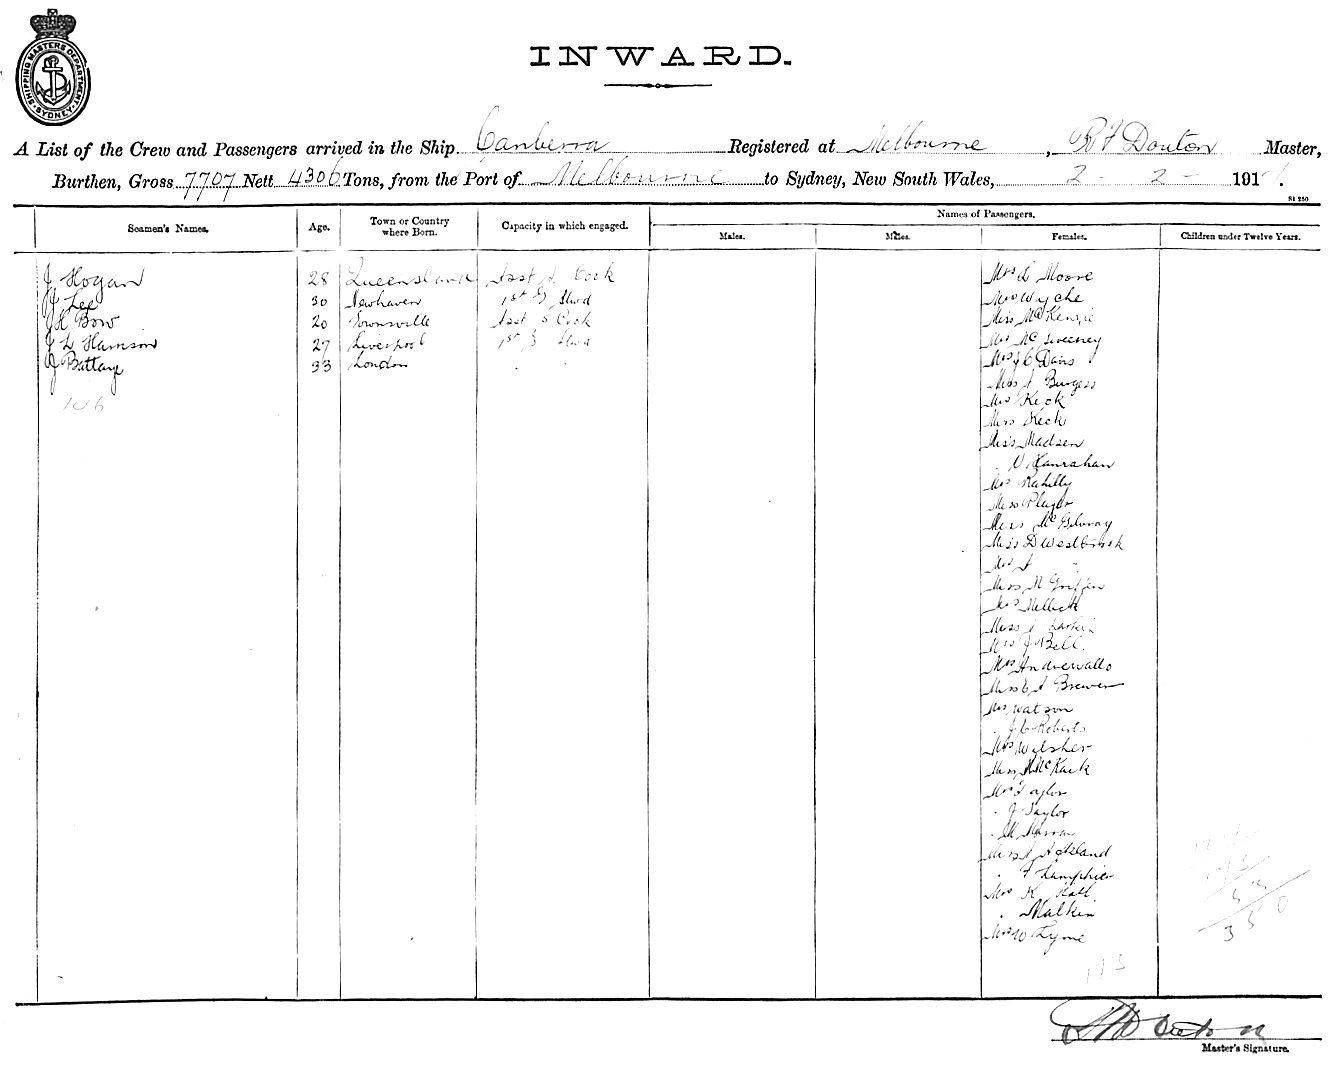 SHIPPING MASTERS DEPARTMENT SYDNEY
INWARD.
A List of the Crew and Passengers arrived in the Ship Canberra Registered at Melbourne, R F Douton Master,
Burthen, Gross 7707 Nett 4306 Tons, from the Port of Melbourne to Sydney, New South Wales, 2 - 2 - 191
S1 250
Seamen's Names. Age. Town or Country where Born. Capacity in which engaged. Names of Passengers.
Males. Males. Females. Children under Twelve Years.
J Hogan 28 Queensland Asst Cook
J Lee 30 Newhaven 1st Stwd
H Bow 20 Townsville Asst S Cook
J L Harrison 27 Liverpool 1st Stwd
J Battaye 33 London
106
Mrs L Moore
Mrs Wyche
Miss McKenzie
Mrs McSweeney
Mrs J C Davis
Miss A Burgess
Mrs Keck
Miss Keck
Miss Madsen
Hanrahan
Mrs Rahilly
Miss Player
Miss McGilvray
Miss D Westbrook
Mrs A "
Miss M Griffin
Mrs Mellick
Miss Larkin
Mrs J Bell
Mrs Andrewatto
Miss A Brewer
Mrs Watson
J C Roberts
Mrs Wilsher
Miss McKack
Mrs Taylor
J Taylor
M
Miss A Ackland
F Lamphier
Mrs K Hall
Malkin
Mrs W Lyme
113
350
Master's Signature.